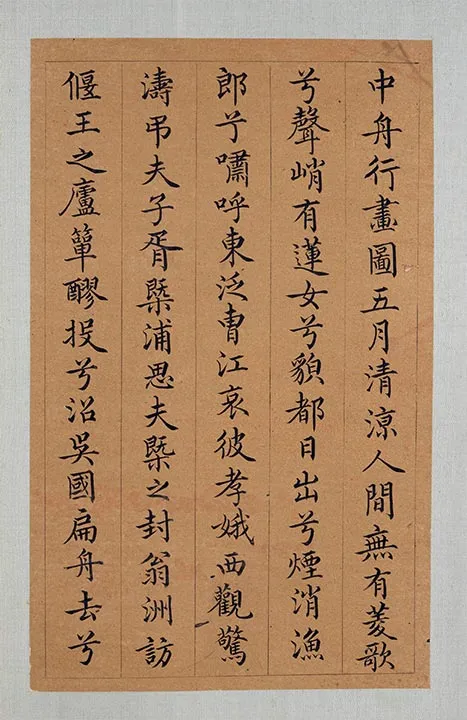 中舟行畫圖五月清涼人間無有菱歌
兮聲峭有蓮女兮貌都日出兮煙消漁
郎兮嘯呼東泛曹江哀彼孝娥西觀驚
濤弔夫子胥槩浦思夫槩之封翁洲訪
偃王之廬簞醪投兮沼吳國扁舟去兮